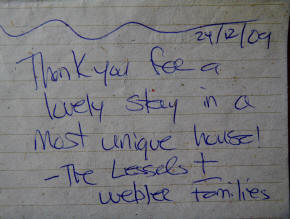 24/12/09
Thank you for a
lovely stay in a
most unique house!
- The Lessels +
families